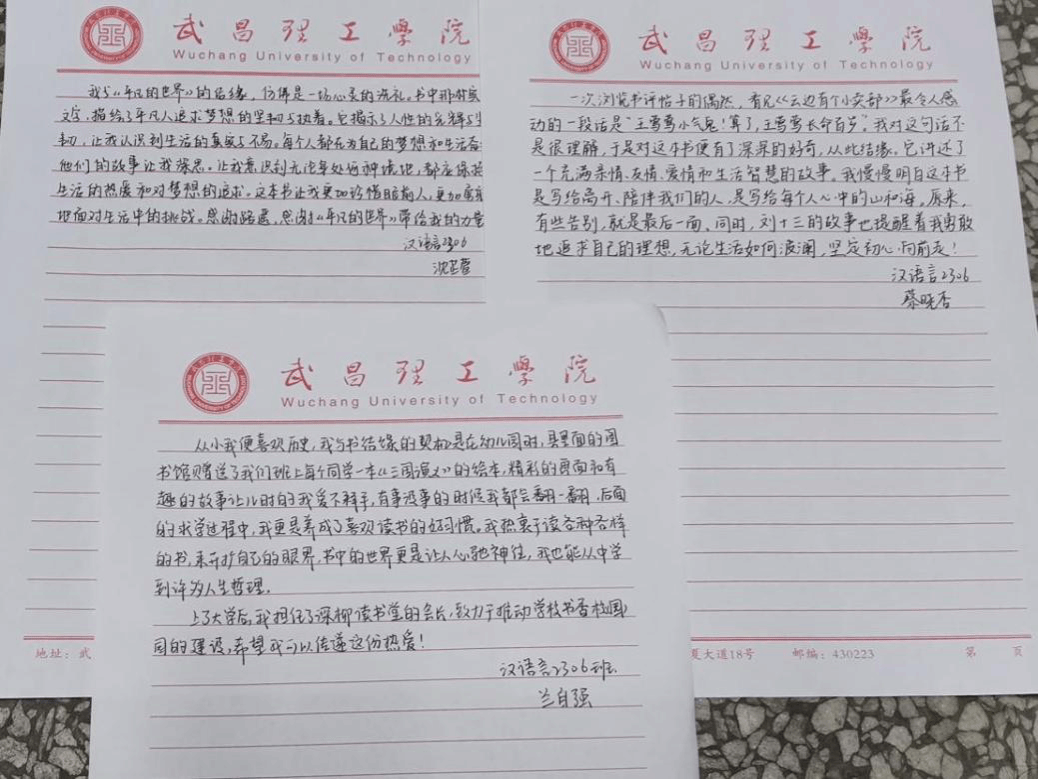 武昌理工學院
Wuchang University of Technology
我与《平凡的世界》的结缘，仿佛是一场心灵的洗礼。书中那朴实
文字，描绘了平凡人追求梦想的坚韧与执着。它揭示了人性的光辉与
韧，让我认识到生活的真实与不易。每个人都在为自己的梦想和生活奋
他们的故事让我深思。让我意识到无论身处何种境地，都应保持
生活的热爱和对梦想的追求。这本书让我更加珍惜眼前人，更加勇敢
地面对生活中的挑战。感谢路遥，感谢《平凡的世界》带给我的力量
汉语言2306
沈芸蓉
武昌理工學院
Wuchang University of Technology
一次浏览书评帖子的偶然，看见《云边有个小卖部》最令人感
动的一段话是“王莺莺小气鬼！算了，王莺莺长命百岁”。我对这句话不
是很理解，于是对这本书便有了深深的好奇，从此结缘。它讲述了
一个充满亲情、友情、爱情和生活智慧的故事。我慢慢明白这本书
是写给离开、陪伴我们的人，是写给每个人心中的山和海，原来，
有些告别，就是最后一面。同时，刘十三的故事也提醒着我勇敢
地追求自己的理想，无论生活如何波澜，坚定初心向前走！
汉语言2306
蔡晓杏
武昌理工學院
Wuchang University of Technology
从小我便喜欢历史，我与书结缘的契机是在幼儿园时，县里面的图
书馆赠送了我们班上每个同学一本《三国演义》的绘本，精彩的画面和有
趣的故事让儿时的我爱不释手，有事没事的时候我都会翻一翻，后面
的求学过程中，我更是养成了喜欢读书的好习惯。我热衷于读各种各样
的书，来开扩自己的眼界，书中的世界更是让人心驰神往，我也能从中学
到许多人生哲理。
上了大学后，我担任了深柳读书堂的会长，致力于推动学校书香校园
同的建设，希望我可以传递这份热爱！
汉语言2306班
兰自强
地址：武
夏大道18号 邮编：430223 第 页